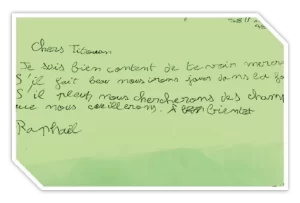 Chers Titouan
Je suis bien content de te voir mercr
S'il fait beau nous irons jouer dans la fo
S'il pleut, nous chercherons des champ
que nous cueillerons. A bientot
Raphaël